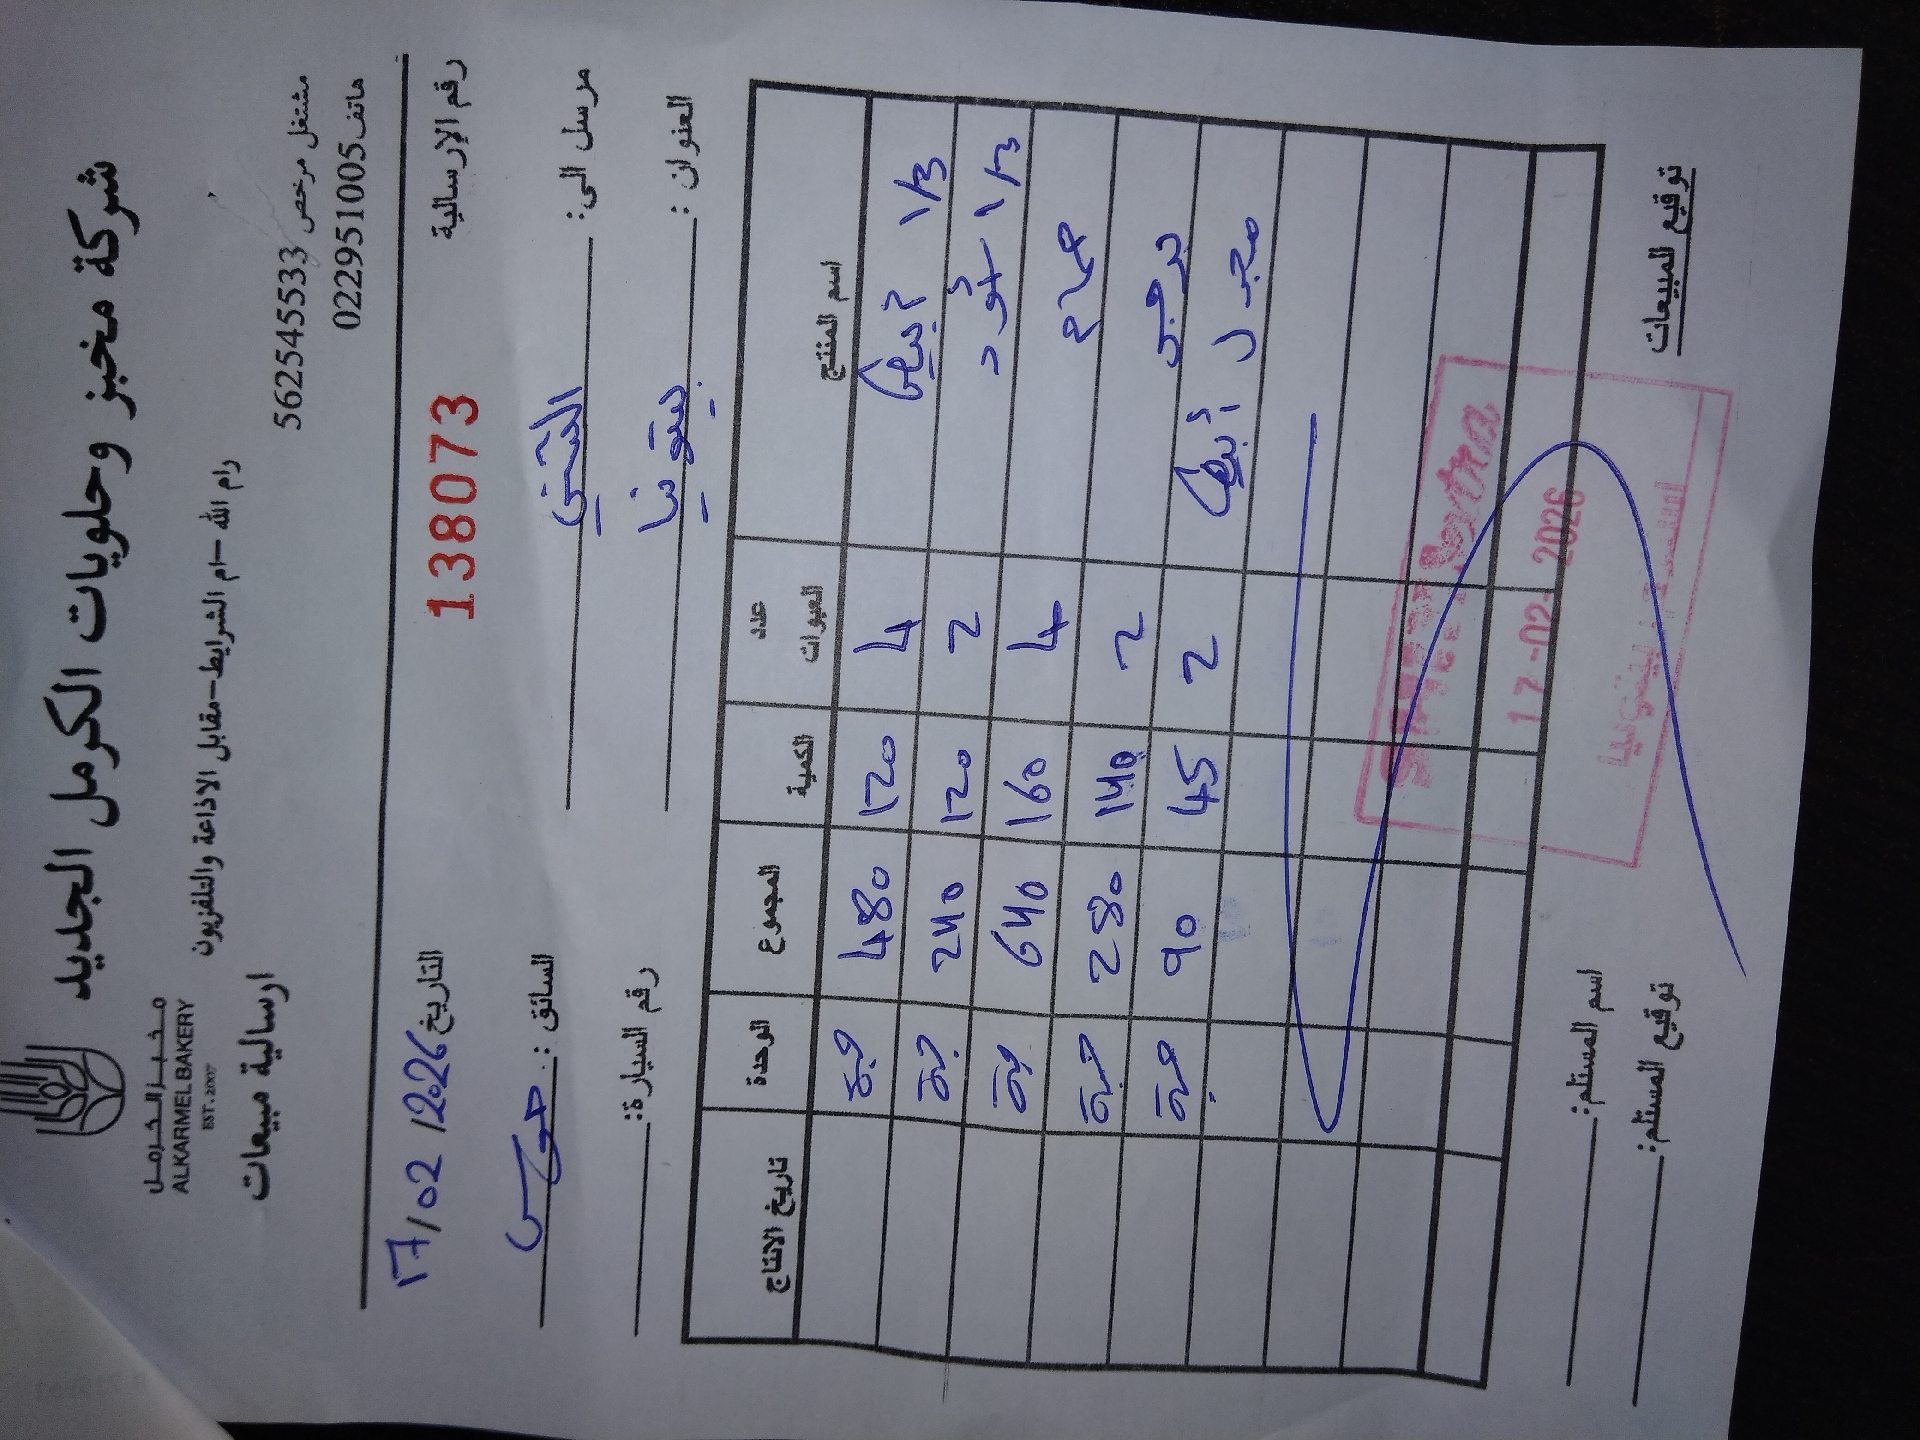 شركة مخبز وحلويات الكرمل الجديد
رام الله -ام الشرايط-مقابل الاذاعة والتلفزيون
مخبز الكرمل
ALKARMEL BAKERY
EST. 2007
مشتغل مرخص 562545533
هاتف 022951005
ارسالية مبيعات
رقم الإرسالية 138073
التاريخ 17/02/2026
مرسل الى:
السائق:
العنوان: بيتونيا
رقم السيارة:
اسم المنتج عدد العبوات الكمية المجموع الوحدة تاريخ الانتاج
1/3 أبيض 4 120 480 حبة
1/3 أسود 2 120 240 حبة
حمام 4 160 640 حبة
2 140 280 حبة
مجدل أبيض 2 45 90 حبة
17-02-2026
بيتونيا
توقيع المبيعات
اسم المستلم:
توقيع المستلم: